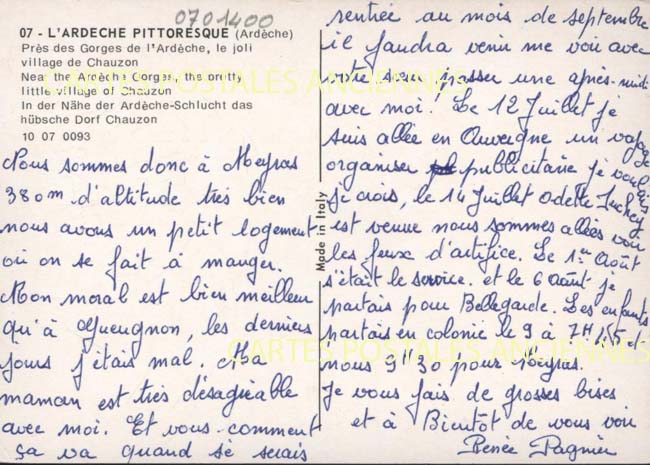 0701400
07 - L'ARDECHE PITTORESQUE (Ardèche)
Près des Gorges de l'Ardèche, le joli
village de Chauzon
Near the Ardèche Gorges, the pretty
little village of Chauzon
In der Nähe der Ardèche-Schlucht das
hübsche Dorf Chauzon
10 07 0093
Nous sommes donc à Meyras
380m d'altitude très bien
nous avons un petit logement
où on se fait à manger.
Mon moral est bien meilleur
qu'à Gueugnon, les derniers
jours j'étais mal. Ma
maman est très désagréable
avec moi. Et vous comment
ça va quand se serais
Made in Italy
rentrée au mois de septembre
il faudra venir me voir avec
votre sœur passer une après-midi
avec moi. Le 12 Juillet je
suis allée en Auvergne un voyage
organiser publicitaire je vous
je crois, le 14 Juillet Odette
est venue nous sommes allées voir
les feux d'artifice. Le 1er Août
s'était le service. et le 6 Août je
partais pour Bellegarde. Les enfants
partais en colonie le 9 à 7H 55 et
nous 9H30 pour Meyras.
Je vous fais de grosses bises
et à Bientôt de vous voir
Renée Pagnier
CARTES POSTALES ANCIENNES
CARTES POSTALES ANCIENNES